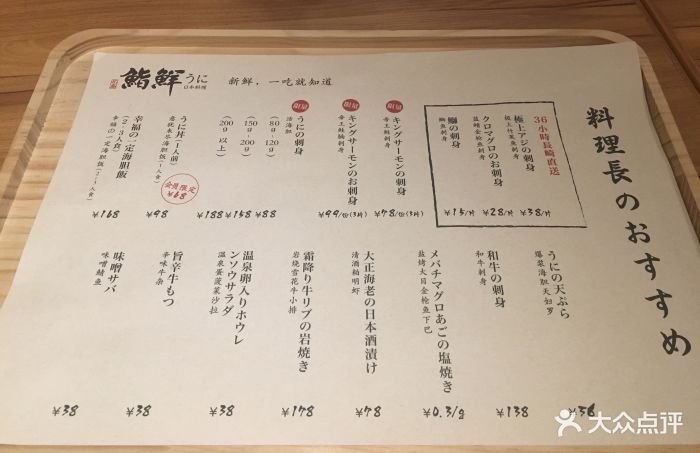 鮨鮮うに
日本料理
新鮮，一吃就知道
料理長のおすすめ
36小時長崎直送
極上アジの刺身
極上竹荚鱼刺身
¥38/片
クロマグロのお刺身
蓝鳍金枪鱼刺身
¥28/片
鰤の刺身
鰤鱼刺身
¥15/片
限量
キングサーモンの刺身
帝王鲑刺身
¥78/份(3片)
限量
キングサーモンのお刺身
帝王鲑腩刺身
¥99/份(3片)
限量
うにの刺身
活海胆
(80g-120g)
¥88
(150g-200g)
¥158
(200g以上)
¥188
うに丼(1人前)
喜悦来界海胆饭(1人食)
会員限定
¥68
¥98
幸福の一定海胆飯
(2-3人食)
幸福の一定海胆饭(2-3人食)
¥168
うにの天ぷら
爆装海胆天妇罗
¥38
和牛の刺身
和牛刺身
¥138
メバチマグロあごの塩焼き
盐烤大目金枪鱼下巴
¥0.3/g
大正海老の日本酒漬け
清酒釉明虾
¥78
霜降り牛リブの岩焼き
岩烧雪花牛小排
¥178
温泉卵入りホウレンソウサラダ
温泉蛋菠菜沙拉
¥38
旨辛牛もつ
辛味牛杂
¥38
味噌サバ
味噌鲭鱼
¥38
大众点评